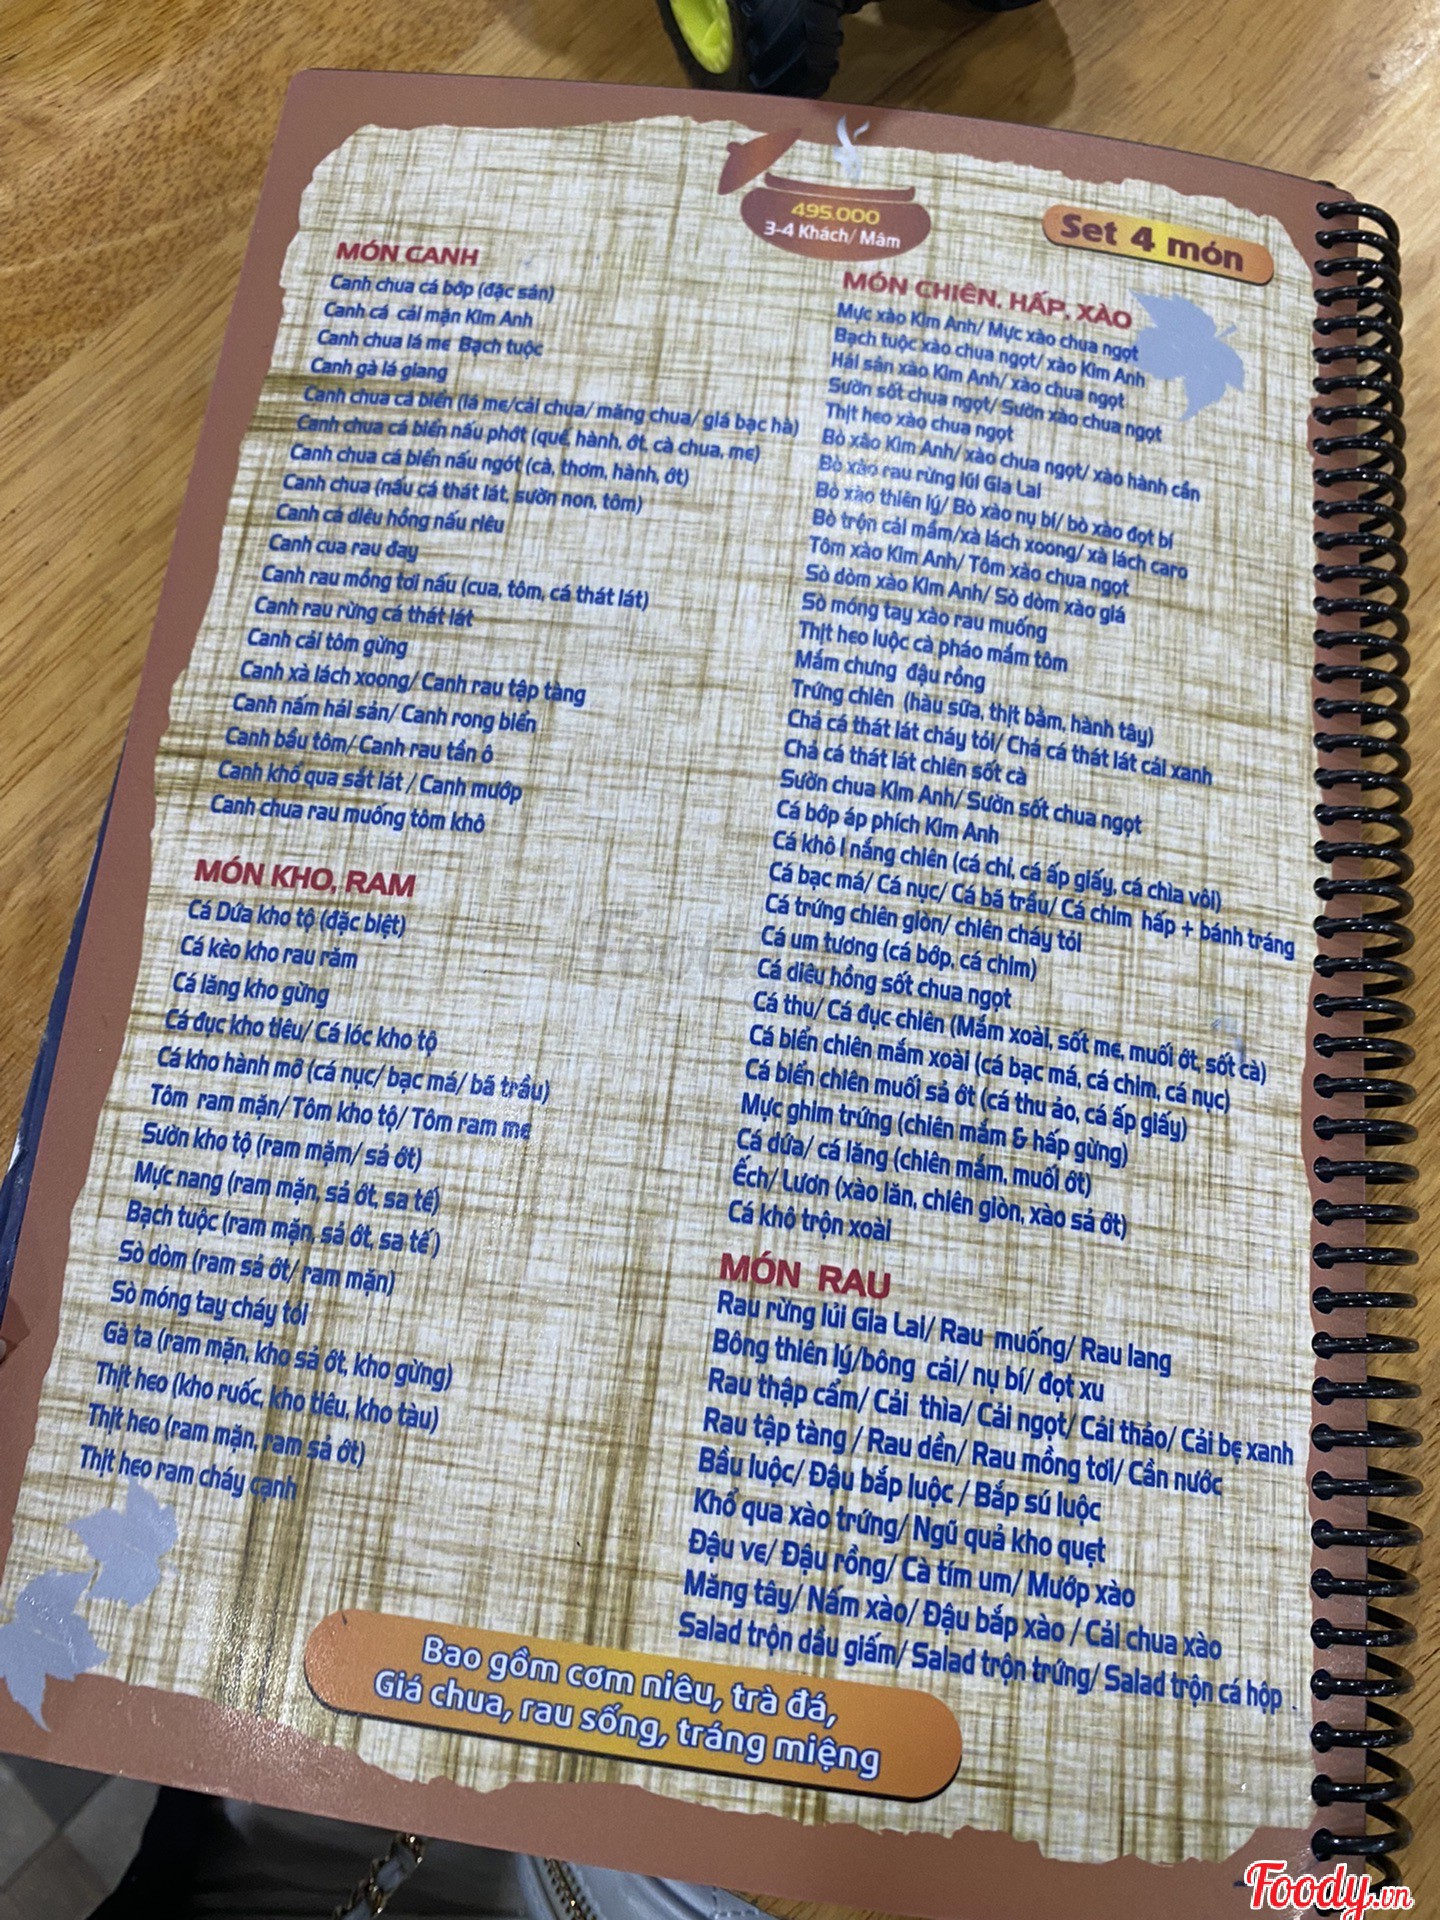 495.000
3-4 Khách/ Mâm
Set 4 món
MÓN CANH
Canh chua cá bớp (đặc sản)
Canh cá cải mặn Kim Anh
Canh chua lá me Bạch tuộc
Canh gà lá giang
Canh chua cá biển (lá me/cải chua/ măng chua/ giá bạc hà)
Canh chua cá biển nấu phớt (quế, hành, ớt, cà chua, me)
Canh chua cá biển nấu ngót (cà, thơm, hành, ớt)
Canh chua (nấu cá thát lát, sườn non, tôm)
Canh cá diêu hồng nấu riêu
Canh cua rau đay
Canh rau mồng tơi nấu (cua, tôm, cá thát lát)
Canh rau rừng cá thát lát
Canh cải tôm gừng
Canh xà lách xoong/ Canh rau tập tàng
Canh nấm hải sản/ Canh rong biển
Canh bầu tôm/ Canh rau tần ô
Canh khổ qua sắt lát / Canh mướp
Canh chua rau muống tôm khô
MÓN KHO, RAM
Cá Dứa kho tộ (đặc biệt)
Cá kèo kho rau răm
Cá lăng kho gừng
Cá đục kho tiêu/ Cá lóc kho tộ
Cá kho hành mỡ (cá nục/ bạc má/ bã trầu)
Tôm ram mặn/ Tôm kho tộ/ Tôm ram me
Sườn kho tộ (ram mặm/ sả ớt)
Mực nang (ram mặn, sả ớt, sa tế)
Bạch tuộc (ram mặn, sả ớt, sa tế )
Sò dòm (ram sả ớt/ ram mặn)
Sò móng tay cháy tỏi
Gà ta (ram mặn, kho sả ớt, kho gừng)
Thịt heo (kho ruốc, kho tiêu, kho tàu)
Thịt heo (ram mặn, ram sả ớt)
Thịt heo ram cháy cạnh
MÓN CHIÊN, HẤP, XÀO
Mực xào Kim Anh/ Mực xào chua ngọt
Bạch tuộc xào chua ngọt/ xào Kim Anh
Hải sản xào Kim Anh/ xào chua ngọt
Sườn sốt chua ngọt/ Sườn xào chua ngọt
Thịt heo xào chua ngọt
Bò xào Kim Anh/ xào chua ngọt/ xào hành cần
Bò xào rau rừng lũi Gia Lai
Bò xào thiên lý/ Bò xào nụ bí/ bò xào đọt bí
Bò trộn cải mầm/xà lách xoong/ xà lách caro
Tôm xào Kim Anh/ Tôm xào chua ngọt
Sò dòm xào Kim Anh/ Sò dòm xào giá
Sò móng tay xào rau muống
Thịt heo luộc cà pháo mắm tôm
Mắm chưng đậu rồng
Trứng chiên (hàu sữa, thịt bằm, hành tây)
Chả cá thát lát cháy tỏi/ Chả cá thát lát cải xanh
Chả cá thát lát chiên sốt cà
Sườn chua Kim Anh/ Sườn sốt chua ngọt
Cá bớp áp phích Kim Anh
Cá khô 1 nắng chiên (cá chỉ, cá ấp giấy, cá chìa vôi)
Cá bạc má/ Cá nục/ Cá bã trầu/ Cá chim hấp + bánh tráng
Cá trứng chiên giòn/ chiên cháy tỏi
Cá um tương (cá bớp, cá chim)
Cá diêu hồng sốt chua ngọt
Cá thu/ Cá đục chiên (Mắm xoài, sốt me, muối ớt, sốt cà)
Cá biển chiên mắm xoài (cá bạc má, cá chim, cá nục)
Cá biển chiên muối sả ớt (cá thu ảo, cá ấp giấy)
Mực ghim trứng (chiên mắm & hấp gừng)
Cá dứa/ cá lăng (chiên mắm, muối ớt)
Ếch/ Lươn (xào lăn, chiên giòn, xào sả ớt)
Cá khô trộn xoài
MÓN RAU
Rau rừng lủi Gia Lai/ Rau muống/ Rau lang
Bông thiên lý/bông cải/ nụ bí/ đọt xu
Rau thập cẩm/ Cải thìa/ Cải ngọt/ Cải thảo/ Cải bẹ xanh
Rau tập tàng / Rau dền/ Rau mồng tơi/ Cần nước
Bầu luộc/ Đậu bắp luộc / Bắp sú luộc
Khổ qua xào trứng/ Ngũ quả kho quẹt
Đậu ve/ Đậu rồng/ Cà tím um/ Mướp xào
Măng tây/ Nấm xào/ Đậu bắp xào / Cải chua xào
Salad trộn dầu giấm/ Salad trộn trứng/ Salad trộn cá hộp
Bao gồm cơm niêu, trà đá,
Giá chua, rau sống, tráng miệng
Foody.vn